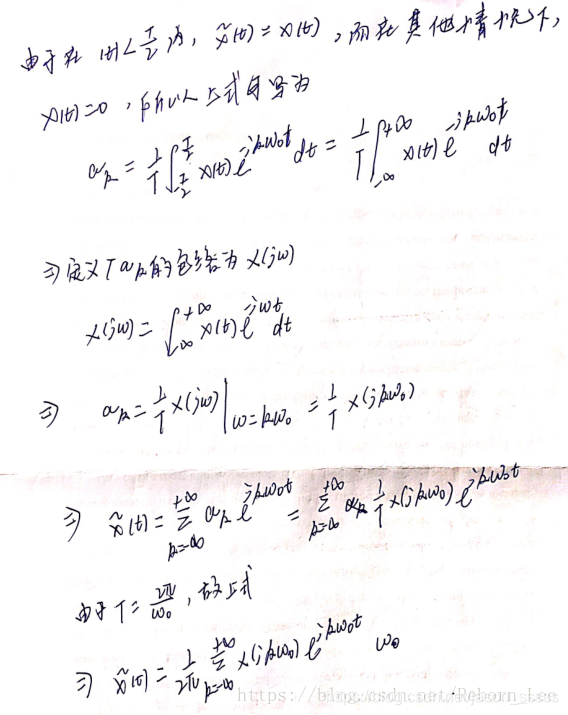 由于在 |t|<T/2 内, x̃(t) = x(t), 而在其他情况下,
x(t)=0, 所以上式可写为
a_k = 1/T ∫_{-T/2}^{T/2} x(t) e^{-jkω₀t} dt = 1/T ∫_{-∞}^{+∞} x(t) e^{-jkω₀t} dt
⇒ 定义 T a_k 的包络为 X(jω)
X(jω) = ∫_{-∞}^{+∞} x(t) e^{-jωt} dt
⇒ a_k = 1/T X(jω) |_{ω=kω₀} = 1/T X(jkω₀)
⇒ x̃(t) = Σ_{k=-∞}^{+∞} a_k e^{jkω₀t} = Σ_{k=-∞}^{+∞} a_k 1/T X(jkω₀) e^{jkω₀t}
由于 T = 2π/ω₀, 故上式
⇒ x̃(t) = 1/2π Σ_{k=-∞}^{+∞} X(jkω₀) e^{jkω₀t} ω₀
https://blog.csdn.net/Reborn_Lee